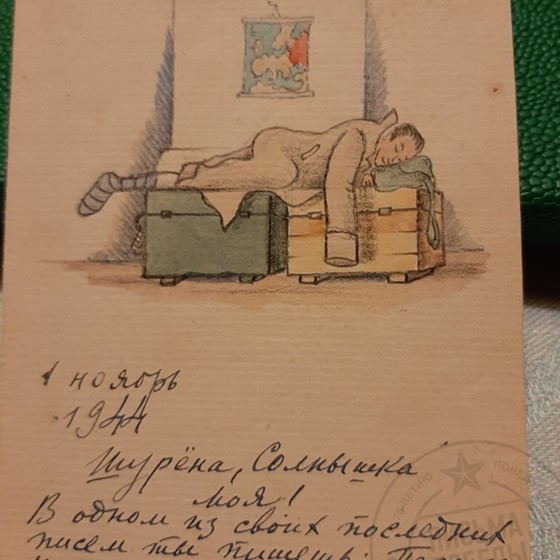 1 ноябрь
1944
Шурёна, Солнышка
моя!
В одном из своих последних
писем ты пишешь: